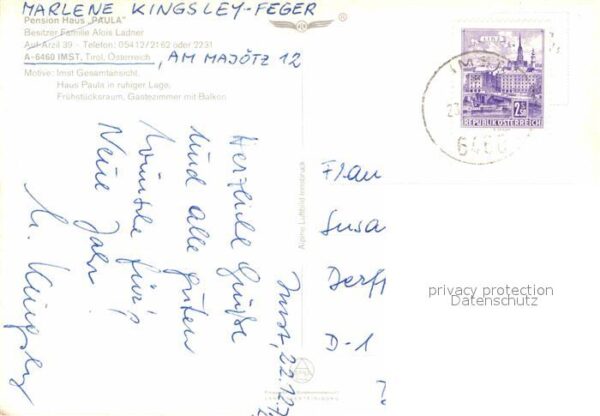 MARLENE KINGSLEY-FEGER
Pension Haus „PAULA"
Besitzer Familie Alois Ladner
Auf Arzill 39 · Telefon: 05412/2162 oder 2231
A-6460 IMST, Tirol, Österreich, AM MAJÖTZ 12
Motive: Imst Gesamtansicht
Haus Paula in ruhiger Lage,
Frühstücksraum, Gästezimmer mit Balkon
Imst, 22.12.7
Herzliche Grüße
und alle guten
Wünsche für's
Neue Jahr
M. Kingsley
Alpine Luftbild Innsbruck
LINZ
2.50
REPUBLIK ÖSTERREICH
IMST
6460
Frau
Susa
Derff
D-1
privacy protection
Datenschutz